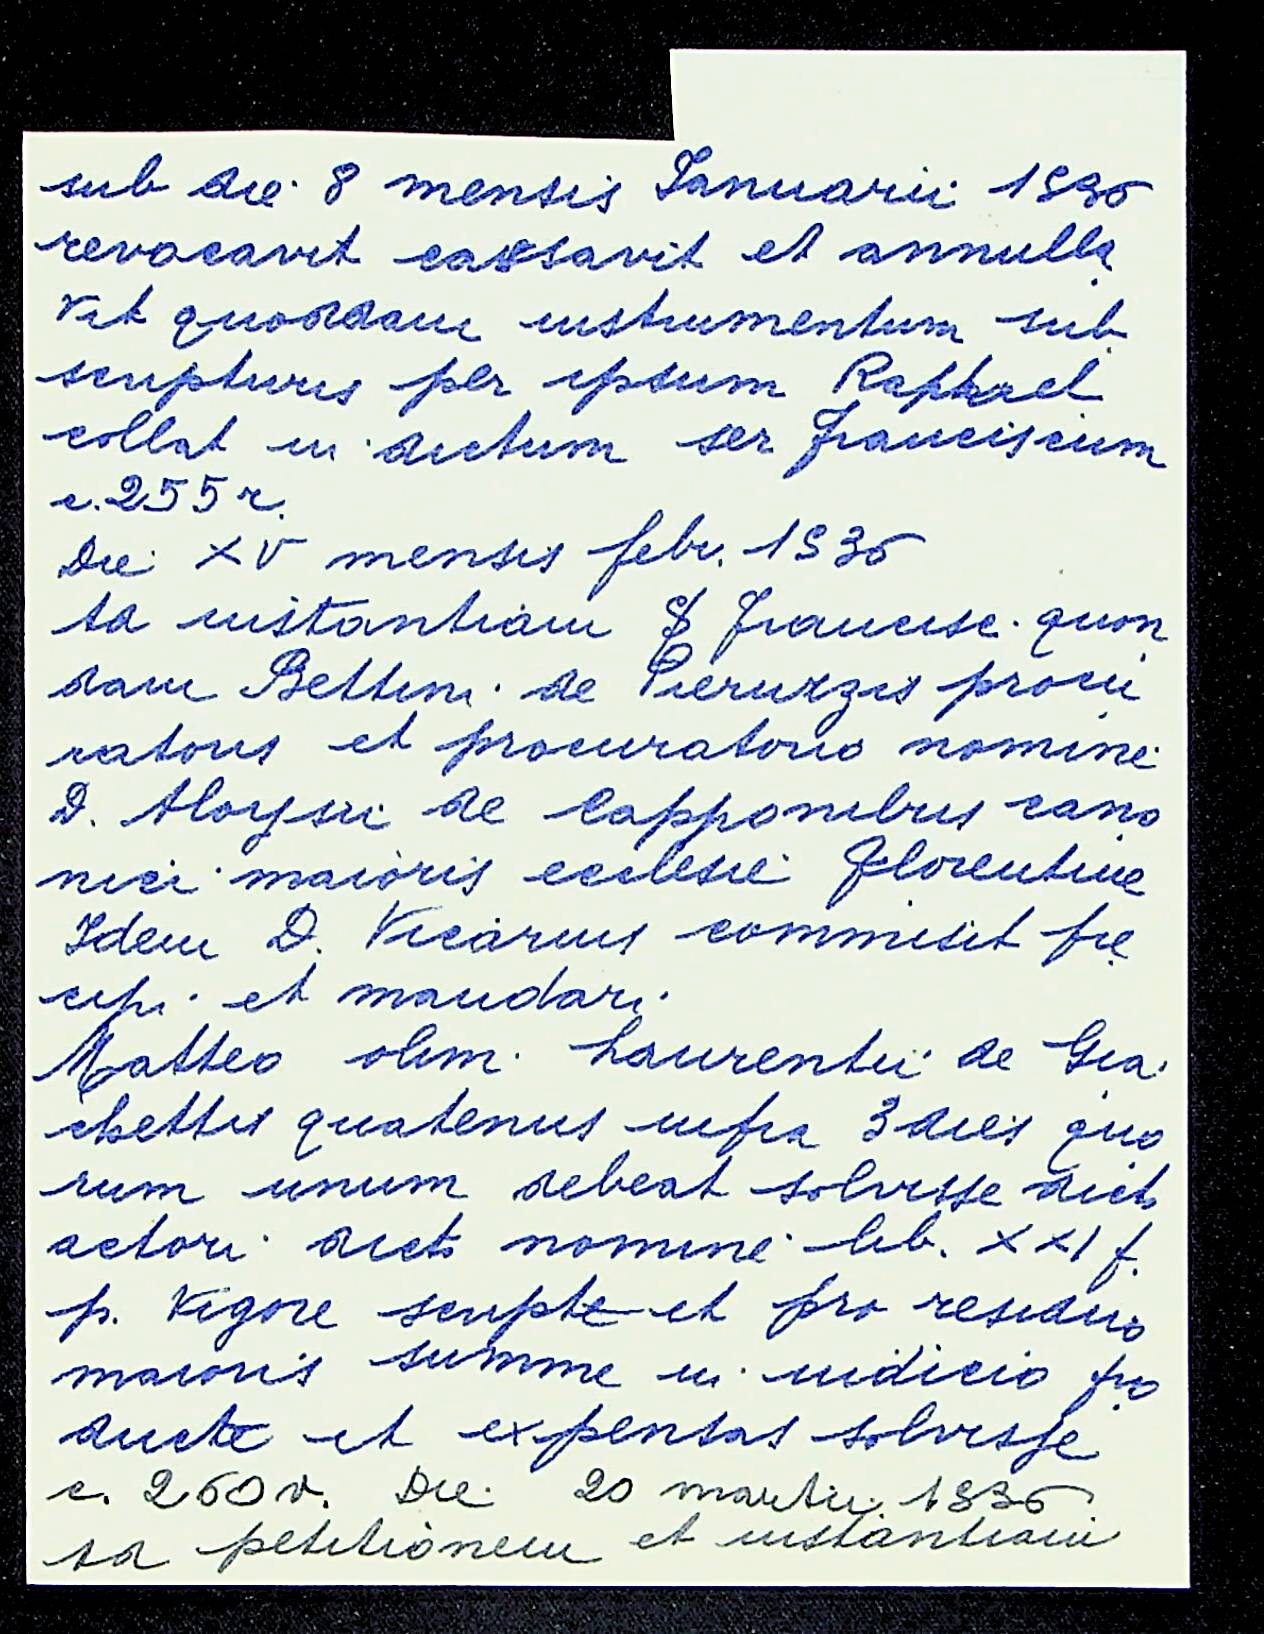 sub die 8 mensis Januarii 1536
revocavit cassavit et annulla
vit quoddam instrumentum sub
scripturis per ipsum Raphael
collat in dictum ser Franciscum
c. 255 r.
Die XV mensis febr. 1536
Ad instantiam S Francisc. quon
dam Bettini de Pieruzzis procu
ratoris et procuratorio nomine
D. Aloysii de Capponibus cano
nici maioris ecclesie Florentine
Idem D. Vicarius commisit pre
cipi et mandari
Matteo olim Laurentii de Gia
chettis quatenus infra 3 dies quo
rum unum debeat solvisse dicto
actori dicto nomine lib. XXI f.
p. vigore scripte et pro residuo
maioris summe in iudicio pro
ducte et expensas solvisse
c. 260 v. Die 20 martii 1536
Ad petitionem et instantiam